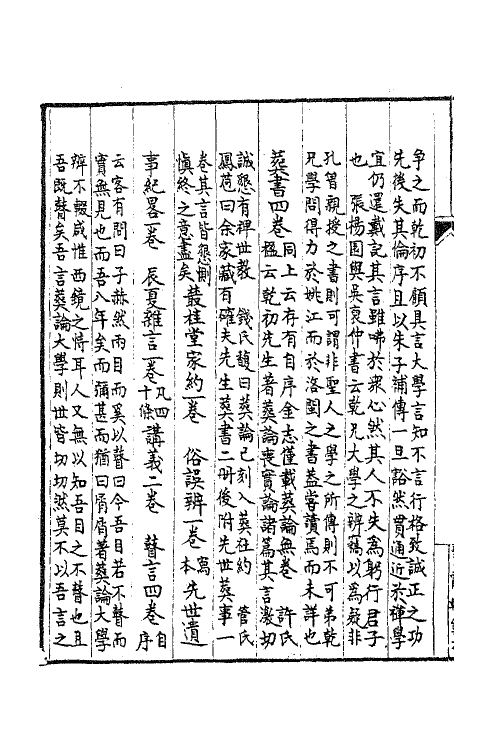 争之而乾初不顧具言大學言知不言行格致誠正之功
先後失其倫序且以朱子補傳一旦豁然貫通近於禪學
宜仍還戴記其言雖咈於衆心然其人不失為躬行君子
也 張楊園與吳裒仲書云乾兄大學之辨竊以為疑非
孔曾親授之書則可謂非聖人之學之所傳則不可弟乾
兄學問得力於姚江而於洛閩之書蓋嘗讀焉而未詳也
葬書四卷 同上云存有自序金志僅載葬論無卷 許氏
楹云乾初先生著葬論喪實論諸篇其言激切
誠懇有裨世教 錢氏馥曰葬論已刻入葬社約 管氏
鳳苞曰余家藏有確夫先生葬書二冊後附先世葬事一
卷其言皆懇惻
慎終之意盡矣 叢桂堂家約一卷 俗誤辨一卷 寫本 先世遺
事紀畧一卷 辰夏雜言一卷 凡四十條 講義二卷 瞽言四卷 自序
云客有問曰子赫然兩目而奚以瞽曰今吾目若不瞽而
實無見也而吾八年矣而彌甚而猶曰屑屑著葬論大學
辨不輟咸惟西鏡之恃耳人又無以知吾目之不瞽也且
吾既瞽矣吾言葬論大學則世皆切切然莫不以吾言之